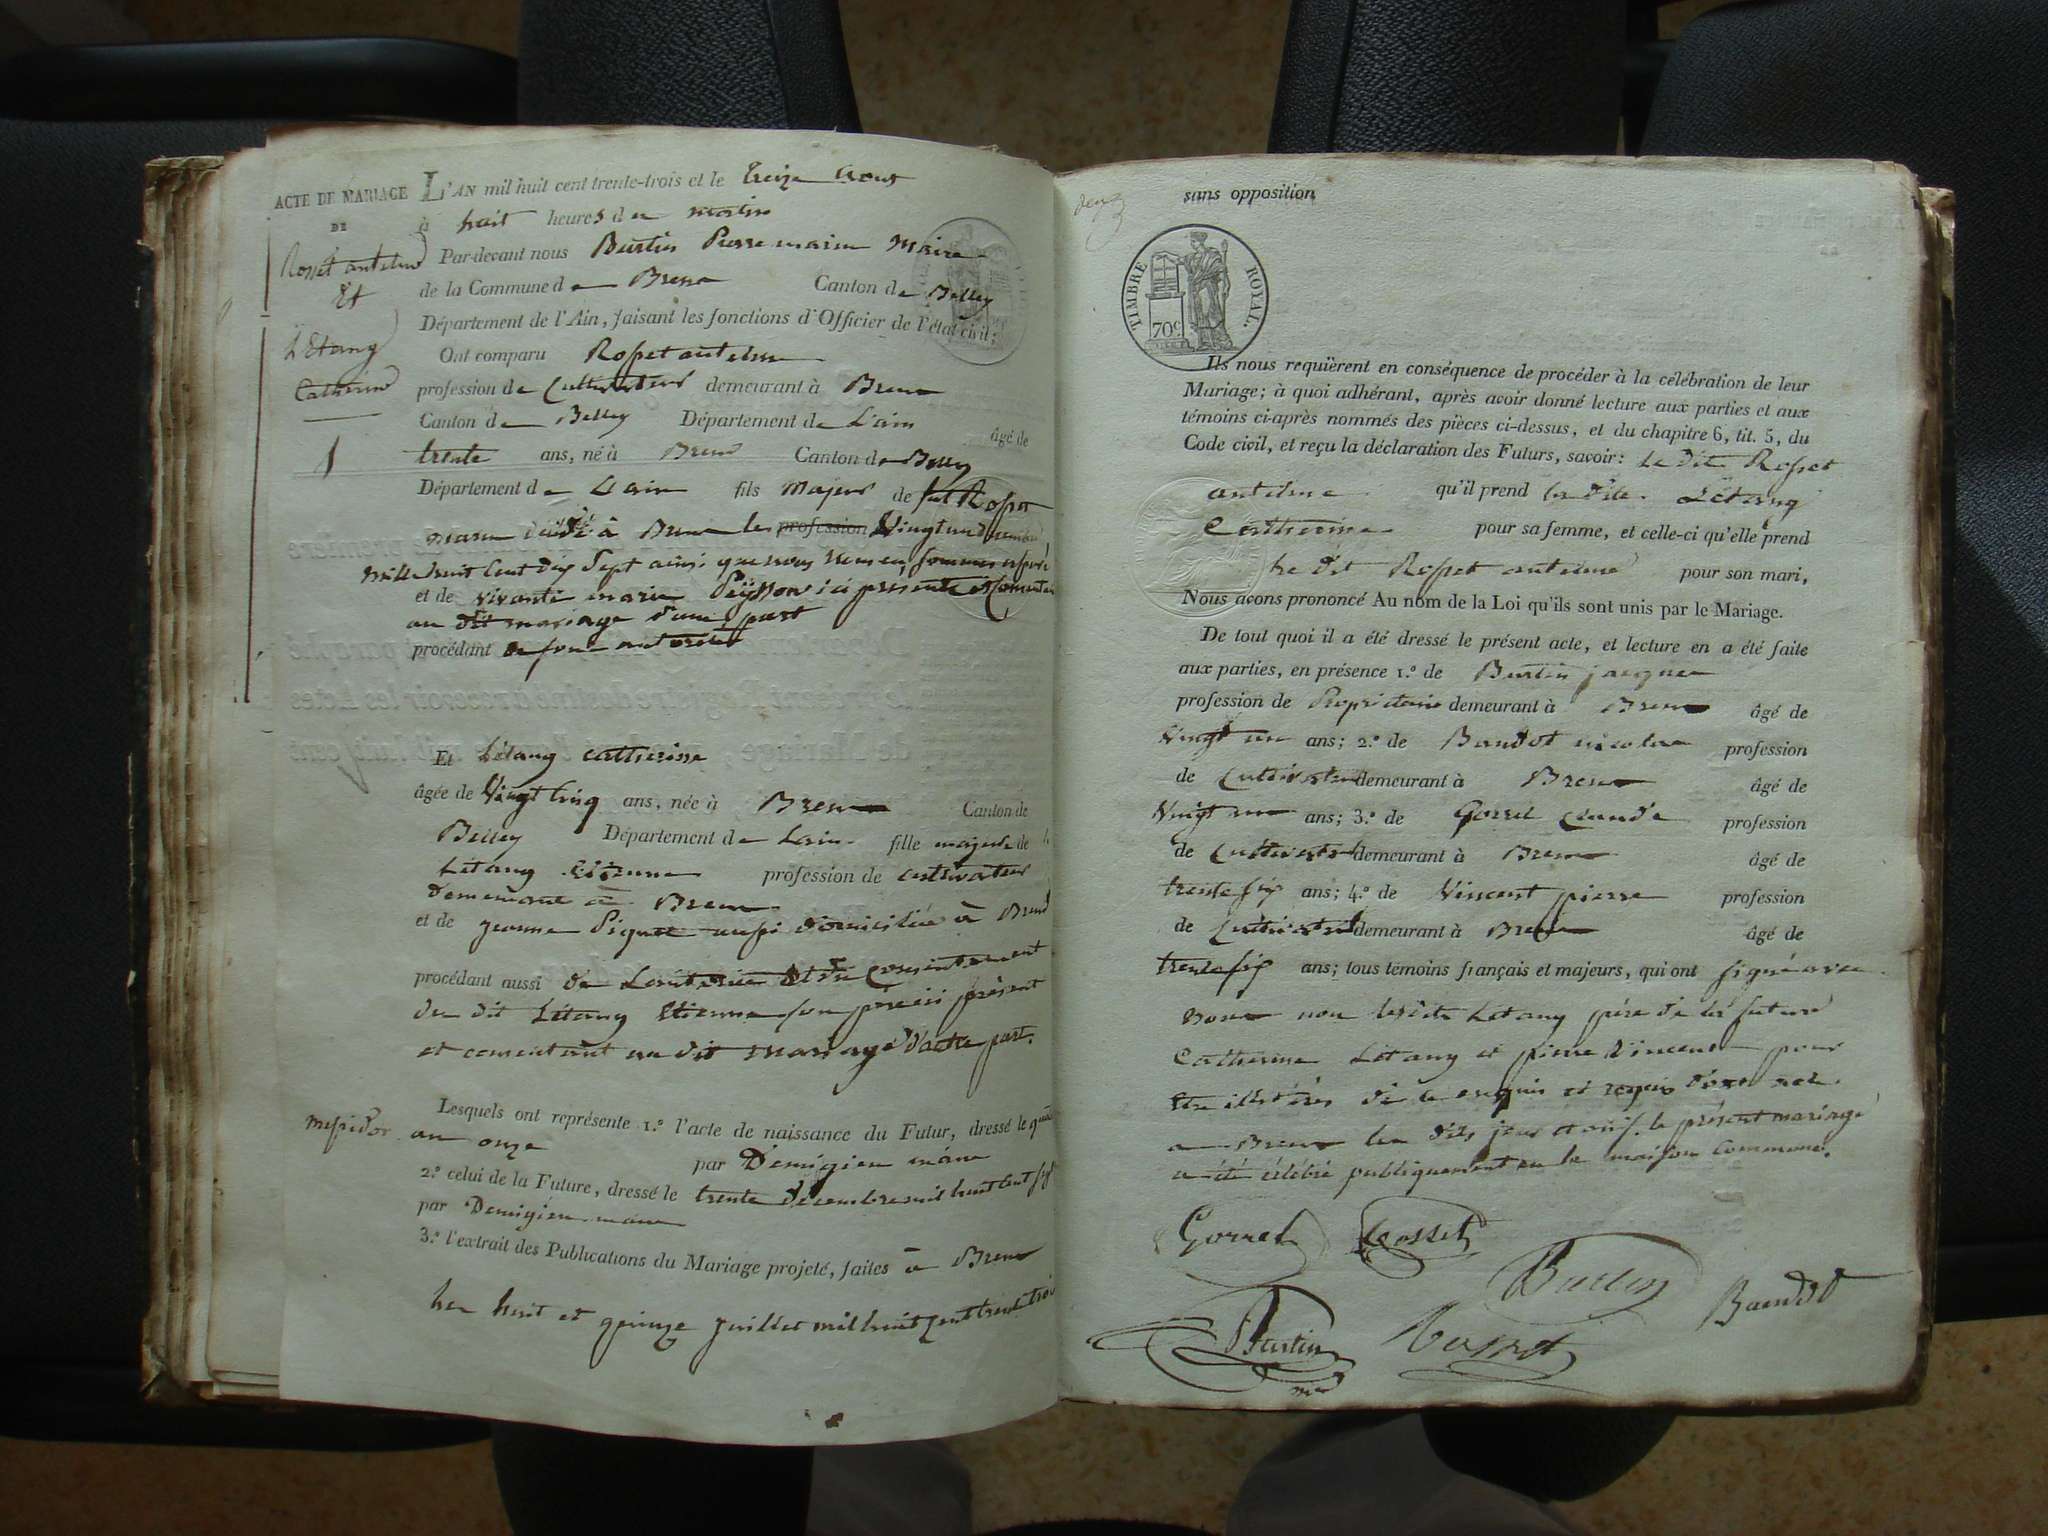 ACTE DE MARIAGE
DE
Rosset antelme
Et
L'Etang
Catherine
1
L'AN mil huit cent trente-trois et le treize aout
à huit heures du matin
Par-devant nous Burtin Pierre marie Maire
de la Commune de Brens Canton de Belley
Département de l'Ain, faisant les fonctions d'Officier de l'état civil;
Ont comparu Rosset antelme
profession de Cultivateur demeurant à Brens
Canton de Belley Département de L'ain âgé de
trente ans, né à Brens Canton de Belley
Département de L'ain fils Majeur de feu Rosset
marie décédé à Brens le profession Vingt un
mille huit Cent dix Sept ainsi que nous nous en sommes assuré
et de vivante marie Peysson ici présente et Consentante
au dit mariage d'une part
procédant de son autorité
Et Létang catherine
âgée de Vingt Cinq ans, née à Brens Canton de
Belley Département de Lain fille majeure de
Létang Etienne profession de cultivateur
demeurant à Brens
et de jeanne Piquet aussi domiciliée à Brens
procédant aussi de L'autorité et du Consentement
du dit Létang Etienne son père ici présent
et consentant au dit mariage d'autre part.
Lesquels ont représente 1.º l'acte de naissance du Futur, dressé le
messidor an onze par Demigieu maire
2.º celui de la Future, dressé le trente décembre mil huit Cent sept
par Demigieu maire
3.º l'extrait des Publications du Mariage projeté, faites à Brens
les huit et quinze juillet mil huit Cent trente trois
sans opposition
TIMBRE ROYAL.
70c
Ils nous requièrent en conséquence de procéder à la célébration de leur
Mariage; à quoi adhérant, après avoir donné lecture aux parties et aux
témoins ci-après nommés des pièces ci-dessus, et du chapitre 6, tit. 5, du
Code civil, et reçu la déclaration des Futurs, savoir: Le dit Rosset
antelme qu'il prend la dite Létang
Catherine pour sa femme, et celle-ci qu'elle prend
Le dit Rosset antelme pour son mari,
Nous avons prononcé Au nom de la Loi qu'ils sont unis par le Mariage.
De tout quoi il a été dressé le présent acte, et lecture en a été faite
aux parties, en présence 1.º de Burtin jacques
profession de Propriétaire demeurant à Brens âgé de
Vingt un ans; 2.º de Baudot nicolas profession
de Cultivateur demeurant à Brens âgé de
Vingt un ans; 3.º de Gorret Claude profession
de Cultivateur demeurant à Brens âgé de
trente six ans; 4.º de Vincent pierre profession
de Cultivateur demeurant à Brens âgé de
trente six ans; tous témoins français et majeurs, qui ont signé avec
nous non lesdits Létang père de la future
Catherine Létang et pierre Vincent pour
être illitérés de ce enquis et requis
a Brens les dits jour et an. le présent mariage
a été célébré publiquement en la maison Commune.
Gorret Rosset
Burtin
Baudot
Burtin
Rosset